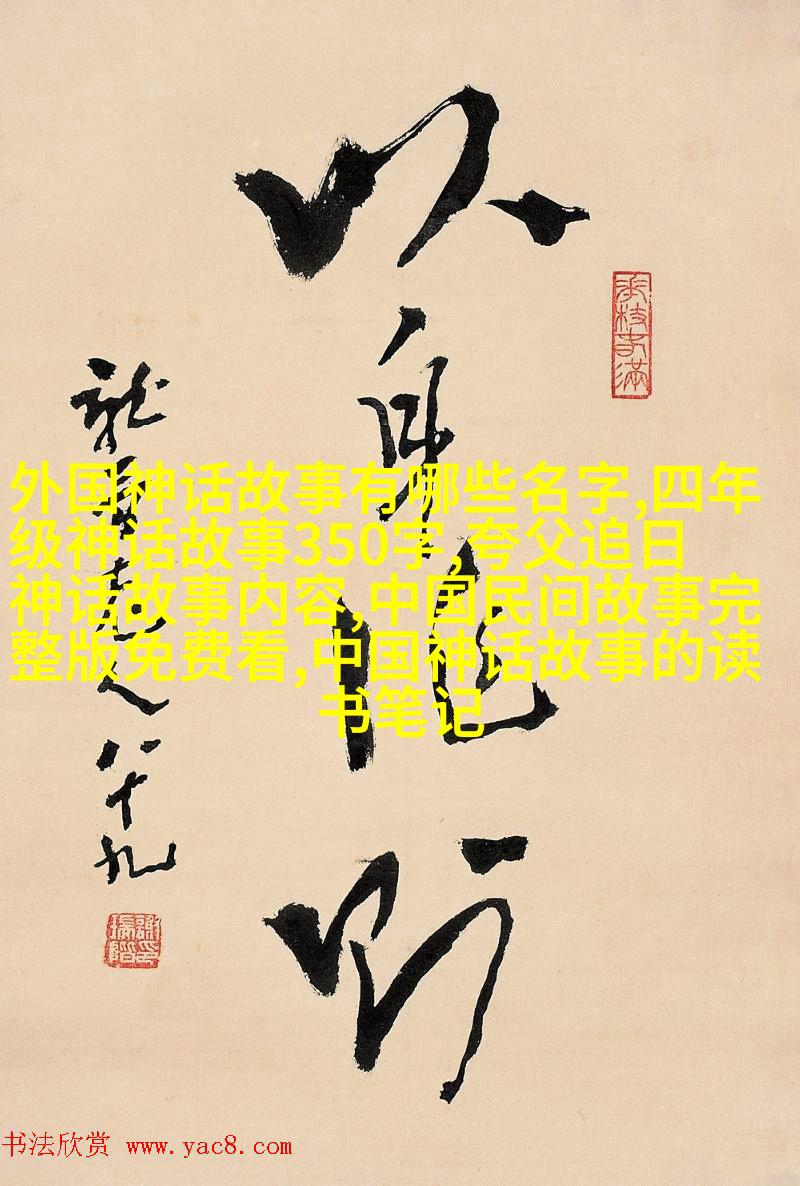 以身作则
老人八十九
外国神话故事有哪些名字,四年
级神话故事350字,夸父追日
神话故事内容,中国民间故事完
整版免费看,中国神话故事的读
书笔记
书法欣赏 www.yac8.com